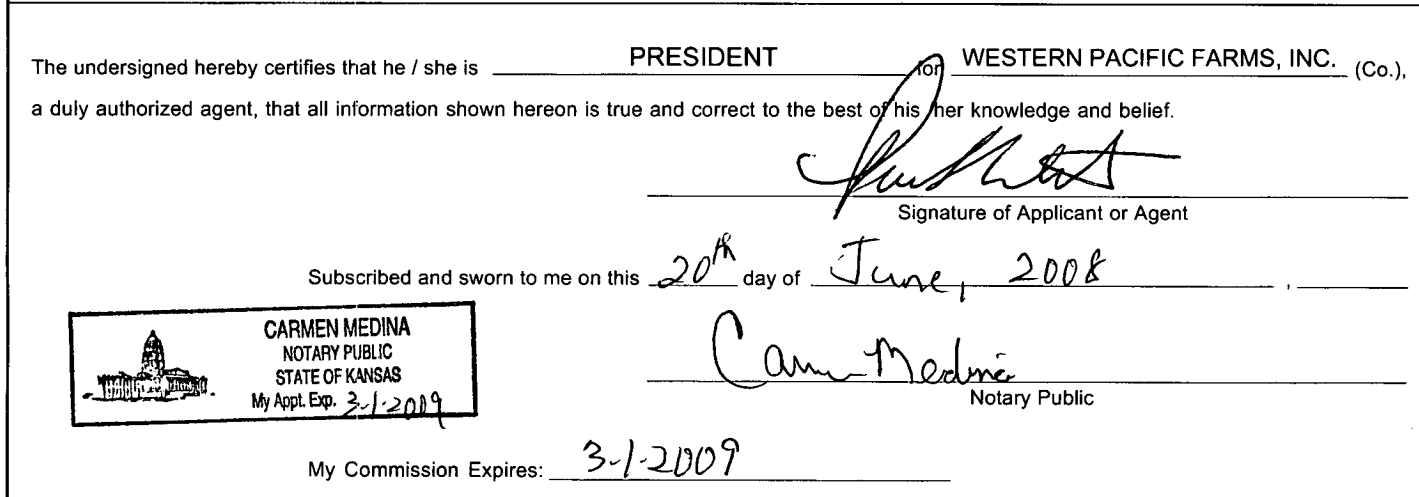 The undersigned hereby certifies that he / she is PRESIDENT for WESTERN PACIFIC FARMS, INC. (Co.),
a duly authorized agent, that all information shown hereon is true and correct to the best of his / her knowledge and belief.
Signature of Applicant or Agent
Subscribed and sworn to me on this 20th day of June, 2008 ,
CARMEN MEDINA
NOTARY PUBLIC
STATE OF KANSAS
My Appt. Exp. 3-1-2009
Carmen Medina
Notary Public
My Commission Expires: 3-1-2009